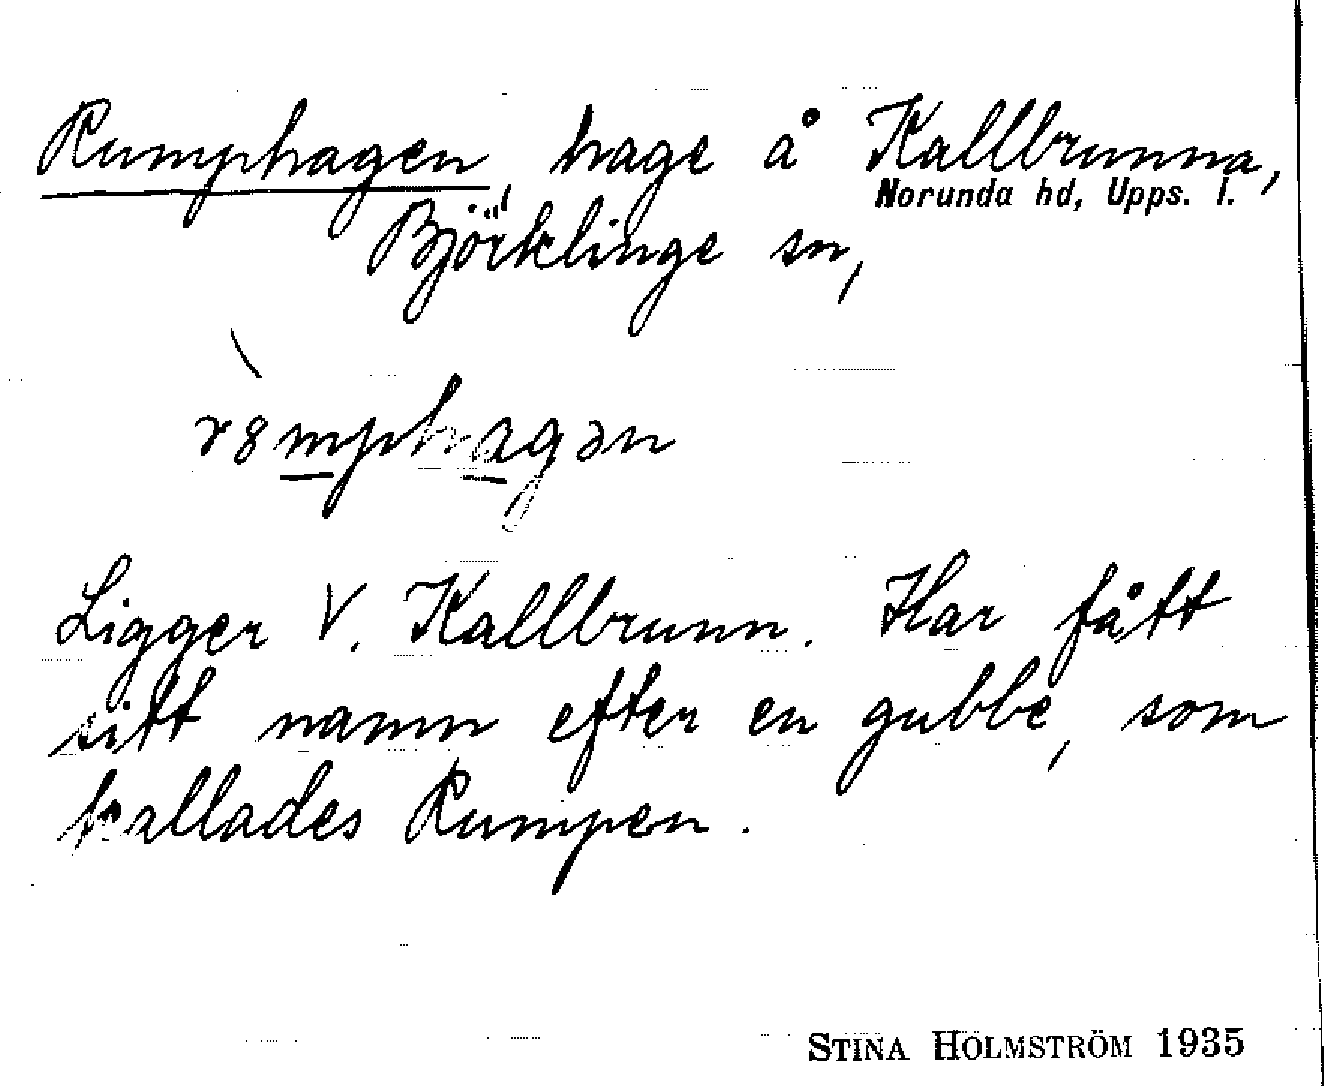 Rumphagen, hage å Kallbrunna,
Norunda hd, Upps. l.
Björklinge sn,
r8mphagən
Ligger V. Kallbrunn. Har fått
sitt namn efter en gubbe, som
kallades Rumpen.
STINA HOLMSTRÖM 1935